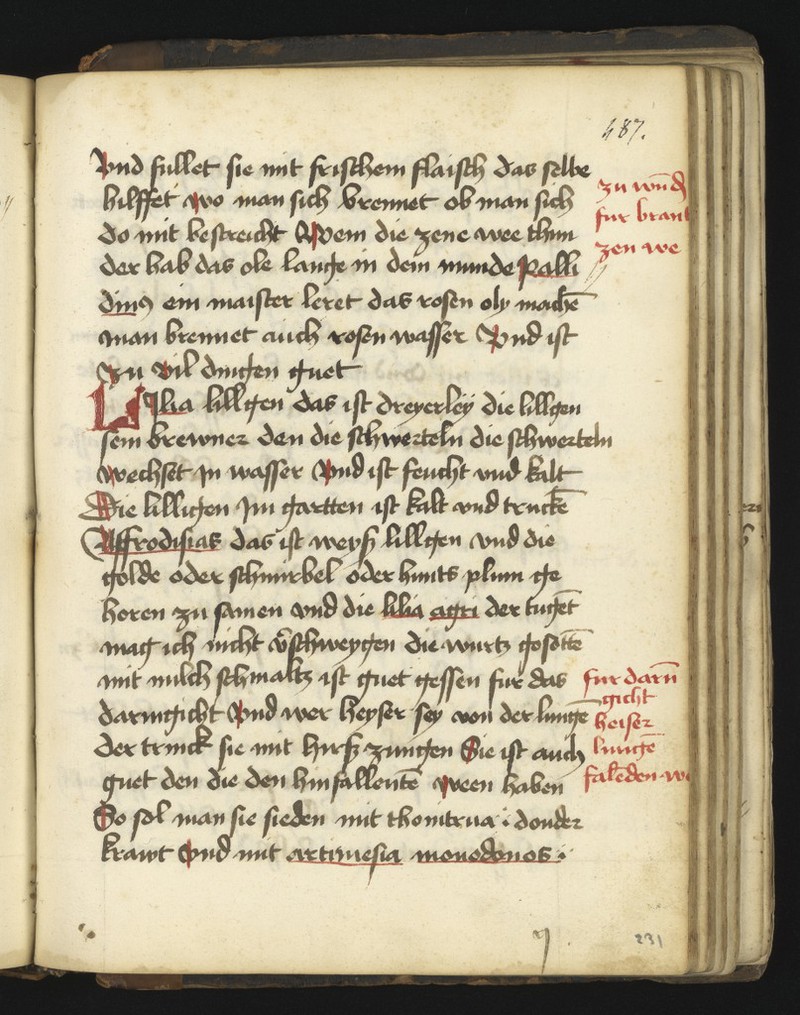 487.
Vnd fullet sie mit frischem flaisch das selbe
hilffet wo man sich brennet ob man sich
do mit bestreicht Wem die zene wee thun
der hab das ole lange in dem munde Palli
dinꝰ ein maister leret das rosen oly machē
man brennet auch rosen wasser Vnd ist
zu vil dingen guet
zu wūd
fur brant
zen we
LIlia lillgen das ist dreyerleÿ die lillgen
sein brewner den die schwerteln die schwerteln
wechset in wasser Vnd ist feucht vnd kalt
Die lilligen Im gartten ist kalt vnd truckē
Affrodisias das ist weyß lillgen vnd die
golde oder schmirbel oder hunts plum ge
horen zu samen vnd die lilia agri der tugēt
mag ich nicht v̄schweygen die wurtz gosottē
mit milch schmaltz ist guet gessen fur das
darmgicht Vnd wer heyser sey von der lungē
der trinck sie mit hirß zungen Sie ist auch
guet den die den hinfallentē ween haben
So sol man sie sieden mit thonitrua · donder
krawt Vnd mit artimesia monodonos ·
fur darm̄
gicht
heiser
lungē
falēden we
231